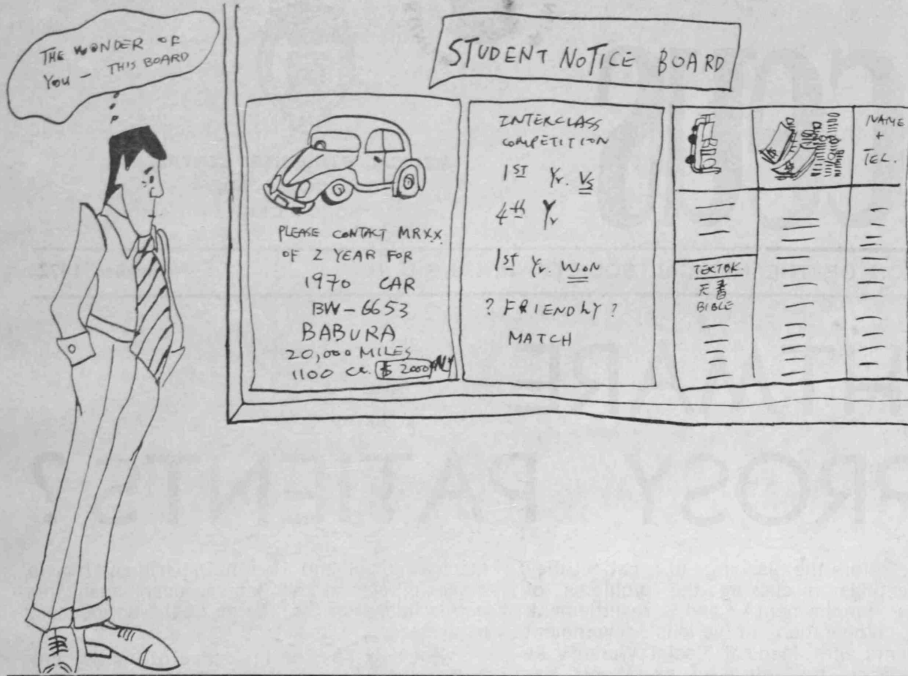 THE WONDER OF
YOU - THIS BOARD
STUDENT NOTICE BOARD
PLEASE CONTACT MR XX
OF 2 YEAR FOR
1970 CAR
BW-6653
BABURA
20,000 MILES
1100 cc. $ 2000 ONLY
INTERCLASS
COMPETITION
1ST Yr. VS
4th Yr
1st Yr. WON
? FRIENDLY ?
MATCH
NAME
+
TEL.
TEKTOK
天書
BIBLE